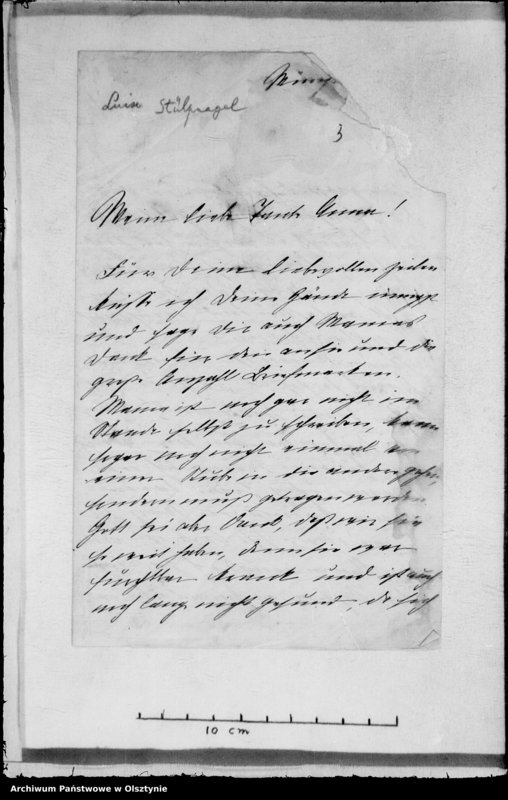 Luise Stülpnagel
3
Meine liebe Tante Anna!
Für Deine liebevollen Zeilen
küsse ich Deine Hände innigst
und sage Dir auch Mamas
Dank für den an sie und die
große Anzahl Briefmarken.
Mama ist noch gar nicht im
Stande selbst zu schreiben, kann
sogar noch nicht einmal
einer Stube in die andere gehen
sondern muß getragen werden
Gott sei aber Dank, daß wir sie
so weit haben, denn sie war
furchtbar krank und ist auch
noch lange nicht gesund, da sich
10 cm
Archiwum Państwowe w Olsztynie